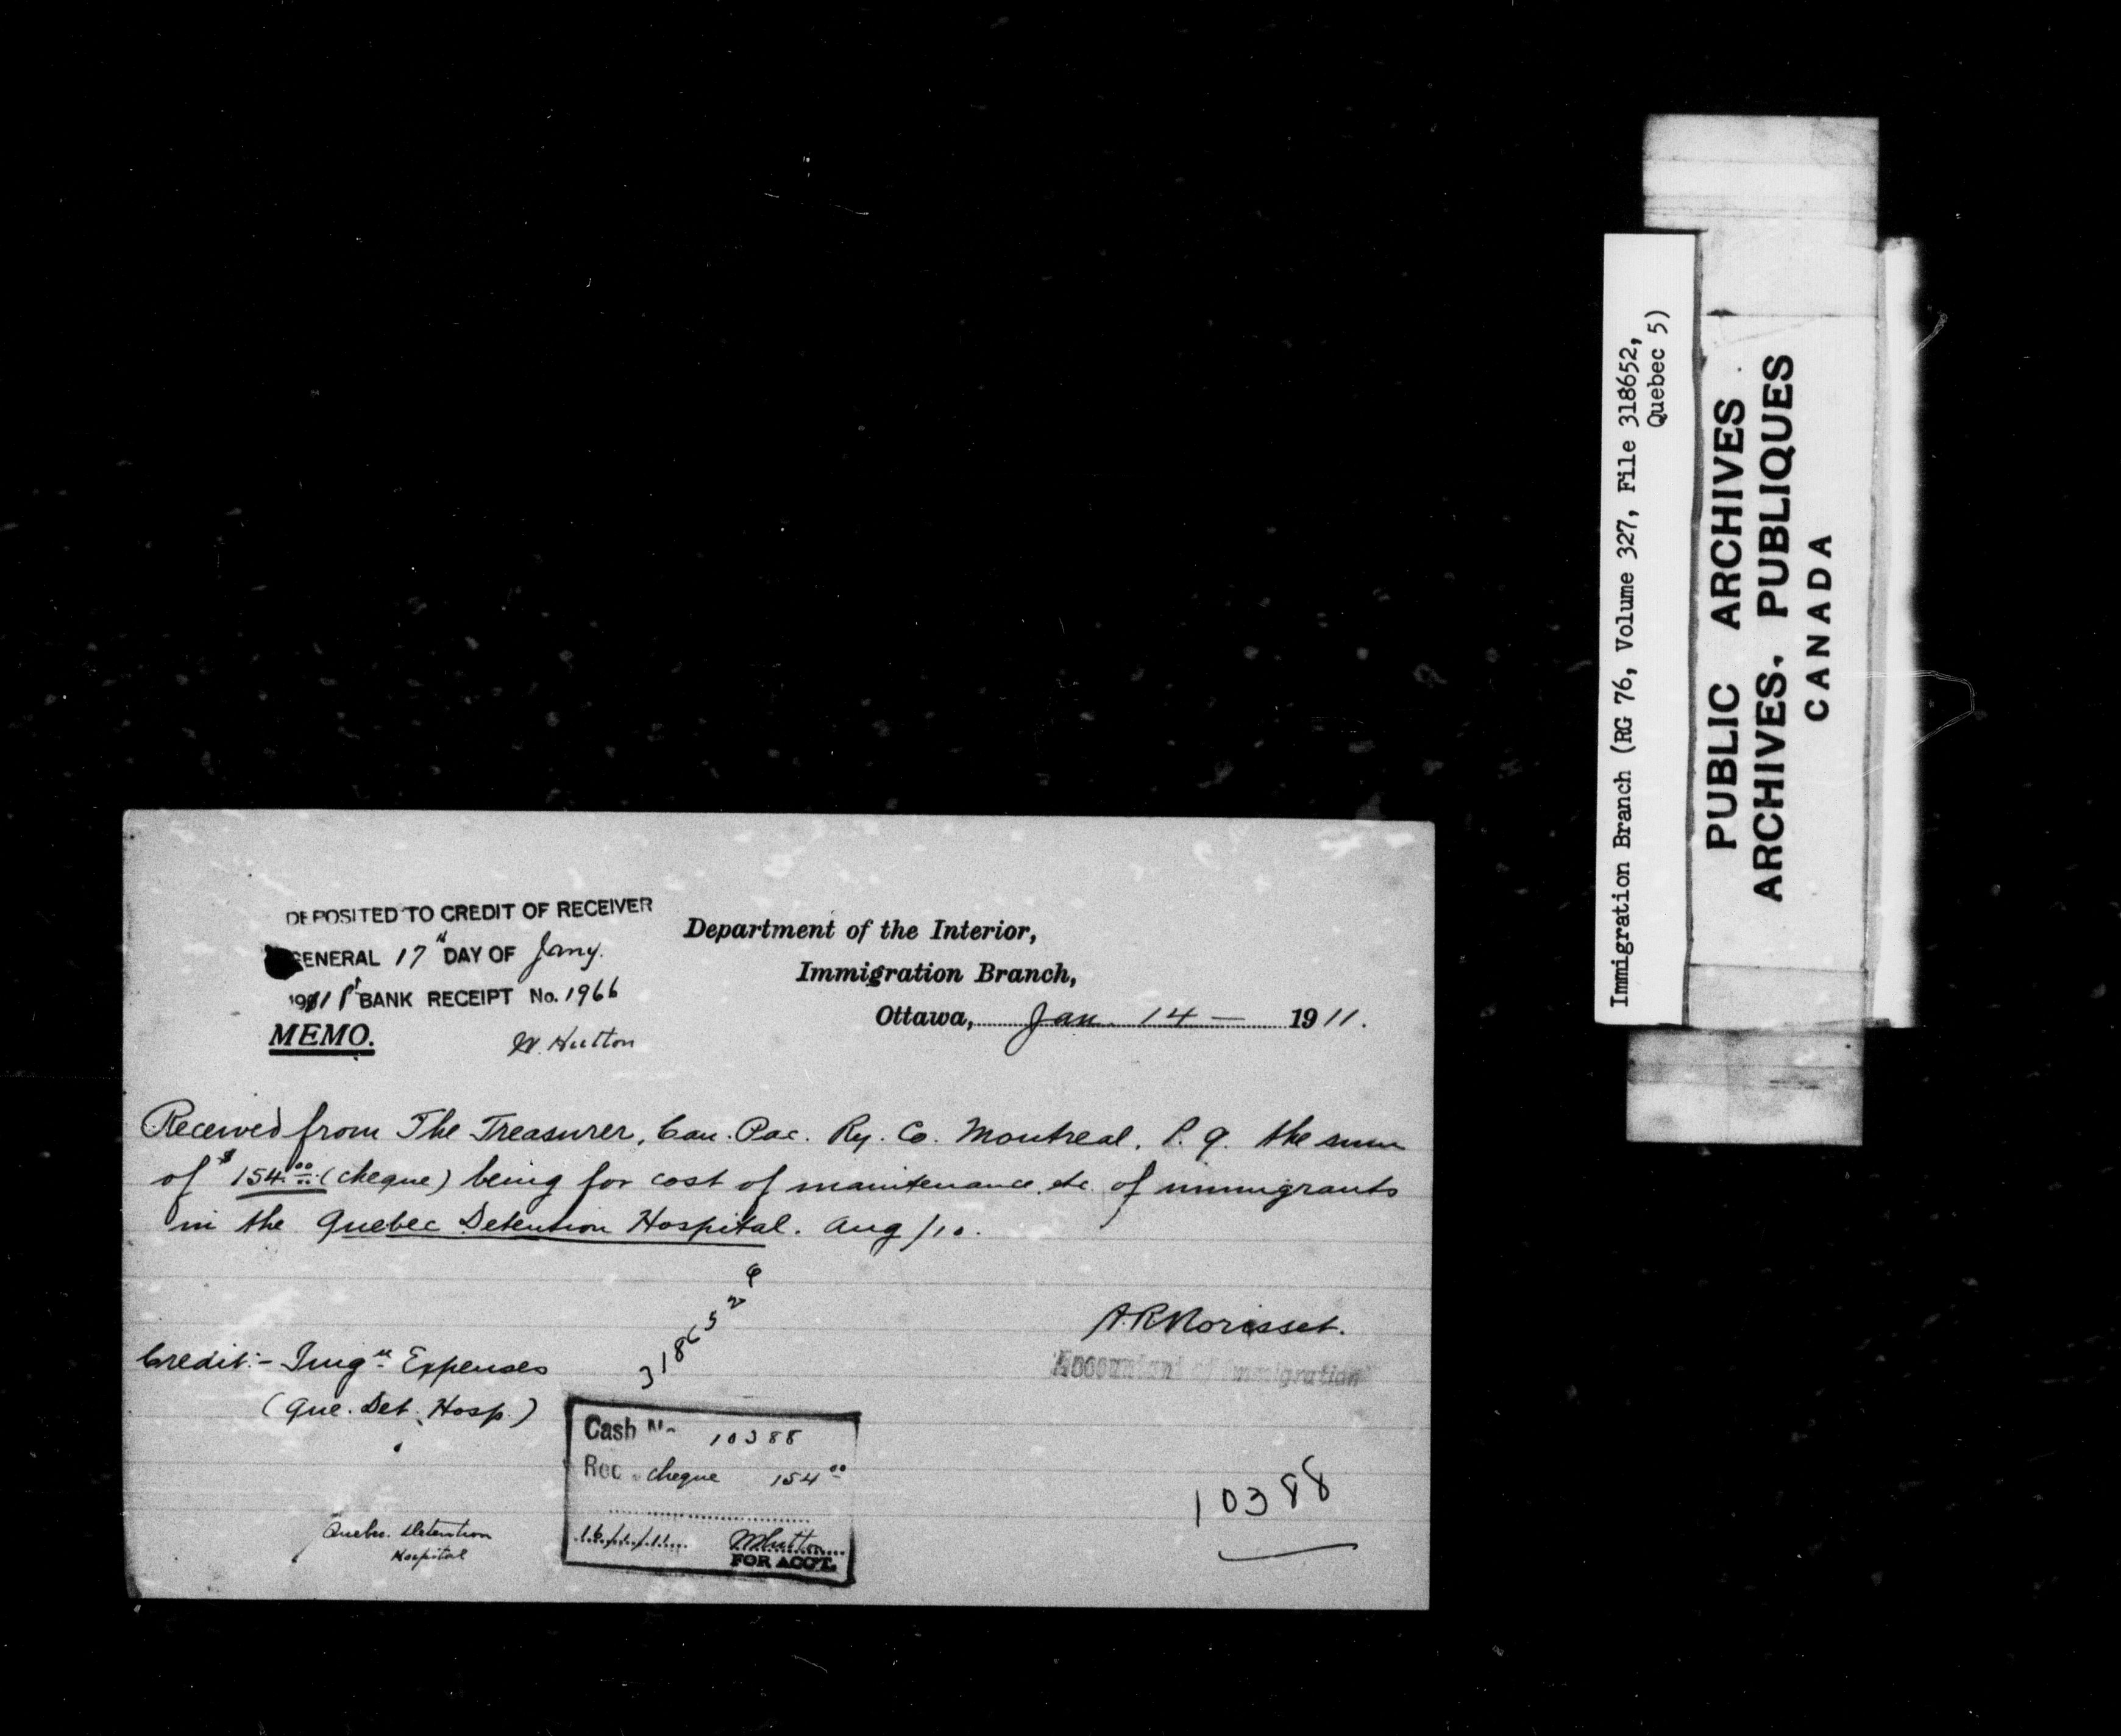 DEPOSITED TO CREDIT OF RECEIVER
GENERAL 17th DAY OF Jany.
1911 BANK RECEIPT No. 1966
W. Hutton
MEMO.
Department of the Interior,
Immigration Branch,
Ottawa, Jan. 14 — 1911.
Received from The Treasurer, Can. Pac. Ry. Co. Montreal, P.Q. the sum
of $154.00 (cheque) being for cost of maintenance, etc. of immigrants
in the Quebec Detention Hospital. Aug/10.
318652
A.R. Morisset.
Accountant of Immigration
Credit:- Imgn Expenses
(Que. Det. Hosp.)
Cash No 10388
Rec cheque 154 00
16/1/11 WHutton
FOR ACCT.
10388
Quebec Detention
Hospital
Immigration Branch (RG 76, Volume 327, File 318652,
Quebec 5)
PUBLIC ARCHIVES
ARCHIVES. PUBLIQUES
CANADA